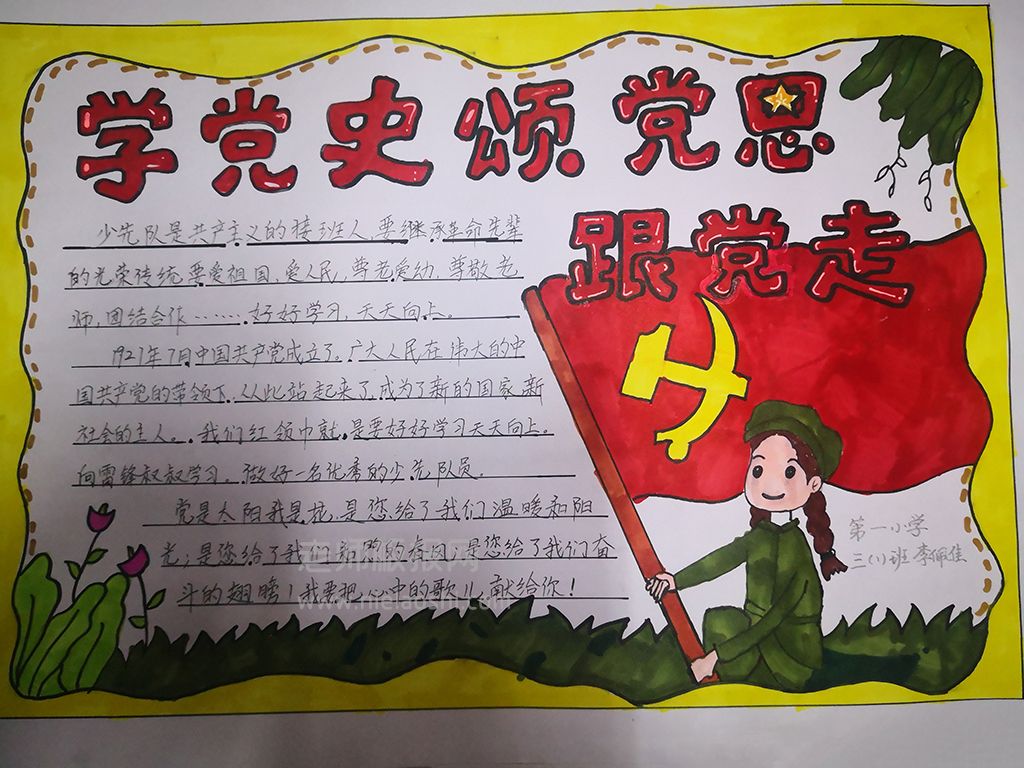 学党史颂党恩
跟党走
少先队是共产主义的接班人,要继承革命先辈
的光荣传统,要爱祖国,爱人民,尊老爱幼,尊敬老
师,团结合作……,好好学习,天天向上。
1921年7月中国共产党成立了。广大人民在伟大的中
国共产党的带领下,从此站起来了,成为了新的国家,新
社会的主人。我们红领巾就是要好好学习天天向上。
向雷锋叔叔学习。做好一名优秀的少先队员。
党是太阳我是花,是您给了我们温暖和阳
光;是您给了我们
是您给了我们奋
斗的翅膀!我要把心中的歌儿献给你!
第一小学
三(1)班 李佩佳
老师板报网